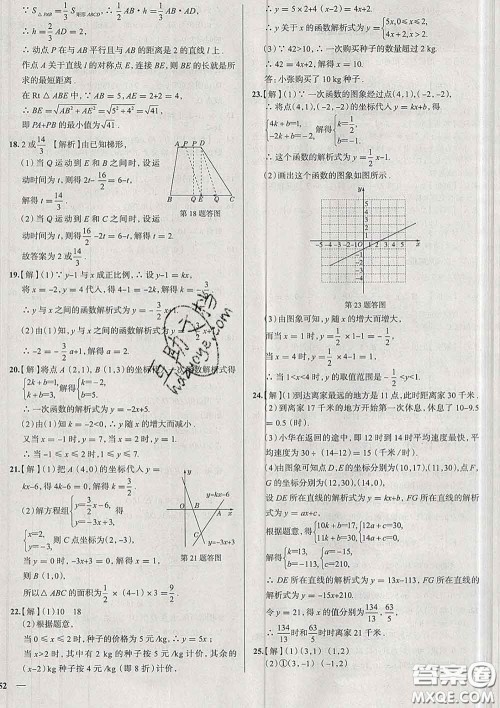 ∵ S△PAB=1/3 S矩形ABCD, ∴ 1/2 AB·h=1/3 AB·AD,
∴ h=2/3 AD=2,
∴ 动点 P 在与 AB 平行且与 AB 的距离是 2 的直线 l 上.
作点 A 关于直线 l 的对称点 E, 连接 BE, 则 BE 的长就是所求的最短距离.
在 Rt△ABE 中, ∵ AB=5, AE=2+2=4,
∴ BE=√(AB²+AE²)=√(5²+4²)=√41,
即 PA+PB 的最小值为 √41.
18. 2 或 14/3 【解析】已知梯形.
(1) 当 Q 运动到 E 和 B 之间时, 设运动时间为 t, 则得 16/2-2t=6-t,
解得 t=2.
(2) 当 Q 运动到 E 和 C 之间时, 设运动时间为 t, 则得 2t-16/2=6-t,
解得 t=14/3.
故答案为 2 或 14/3.
第 18 题答图
19.【解】(1) ∵ y-1 与 x 成正比例, ∴ 设 y-1=kx,
将 x=-2, y=4 代入, 得 4-1=-2k, 解得 k=-3/2,
∴ y 与 x 之间的函数解析式为 y=-3/2 x+1.
(2) 由(1)知, y 与 x 之间的函数解析式为 y=-3/2 x+1,
∴ -2=-3/2 a+1, 解得 a=2.
20.【解】(1) 将点 A(2,1), B(1,3) 的坐标代入一次函数解析式得
{2k+b=1, k+b=3, 解得 {k=-2, b=5,
∴ 一次函数的解析式为 y=-2x+5.
(2) 由(1)知 k=-2<0, ∴ y 随 x 的增大而减小.
又 当 x=-1 时, y=7, 当 y=1 时, x=2,
∴ 当 -1≤x≤2 时, 1≤y≤7.
21.【解】(1) 把 A(4,0) 的坐标代入 y=kx-6, 得 4k-6=0, 解得 k=3/2.
(2) 解方程组 {y=3/2 x-6, y=-3x+3, 得
{x=2, y=-3, 则 C(2,-3).
当 y=0 时, -3x+3=0,
解得 x=1, 则 B(1,0),
所以△ABC 的面积为 1/2×(4-1)×3=9/2.
y=kx-6
y=-3x+3
第 21 题答图
22.【解】(1) 10 18
(2) 根据题意,
当 0≤x≤2 时, 种子的价格为 5 元/kg, ∴ y=5x;
当 x>2 时, 其中有 2 kg 的种子按 5 元/kg 计价, 其余的 (x-2)kg 种子按 4 元/kg (即 8 折) 计价,
52
∴ y 关于 x 的函数解析式为 y={5x,0≤x≤2, 4x+2,x>2.
(3) ∵ 42>10, ∴ 一次购买种子的数量超过 2 kg.
∴ 42=4x+2, 解得 x=10.
答: 小张购买了 10 kg 种子.
23.【解】(1) ∵ 一次函数的图象经过点 (4,1), (-2,-2),
∴ 将点 (4,1), (-2,-2) 的坐标代入 y=kx+b, 得
{4k+b=1, -2k+b=-2, 解得 {k=1/2, b=-1,
∴ 这个函数的解析式为 y=1/2 x-1.
(2) 画出这个函数的图象如图所示.
第 23 题答图
(3) 由图象可知, y 随 x 的增大而增大,
而当 x=1 时, y=1/2×1-1=-1/2,
当 x=4 时, y=1/2×4-1=1,
∴ 当 1<x<4 时, y 的取值范围是 -1/2<y<1.
24.【解】(1) 到达离家最远的地方是 11 点, 此时距离家 30 千米.
(2) 到距离家 17 千米的地方开始第一次休息, 休息了 10-9.5=0.5 (时).
(3) 小华在返回的途中, 即 12 时到 14 时平均速度最快,
平均速度是 30÷(14-12)=15 (千米/时).
(4) 由图象可知 D,E,F,G 的坐标分别为 (10,17), (11,30), (12,30), (14,0),
设 DE 所在直线的解析式为 y=kx+b, FG 所在直线的解析式为 y=ax+c,
根据题意, 得 {10k+b=17, 11k+b=30, {12a+c=30, 14a+c=0,
解得 {k=13, b=-113, {a=-15, c=210.
∴ DE 所在直线的解析式为 y=13x-113, FG 所在直线的解析式为 y=-15x+210.
令 y=21, 求得 x 的值分别为 134/13, 63/5,
∴ 第 134/13 时, 63/5 时离家 21 千米.
25.【解】(1) (3,1)
(2) ①(3,1), (1,-2)
答案圈
MXQE.COM